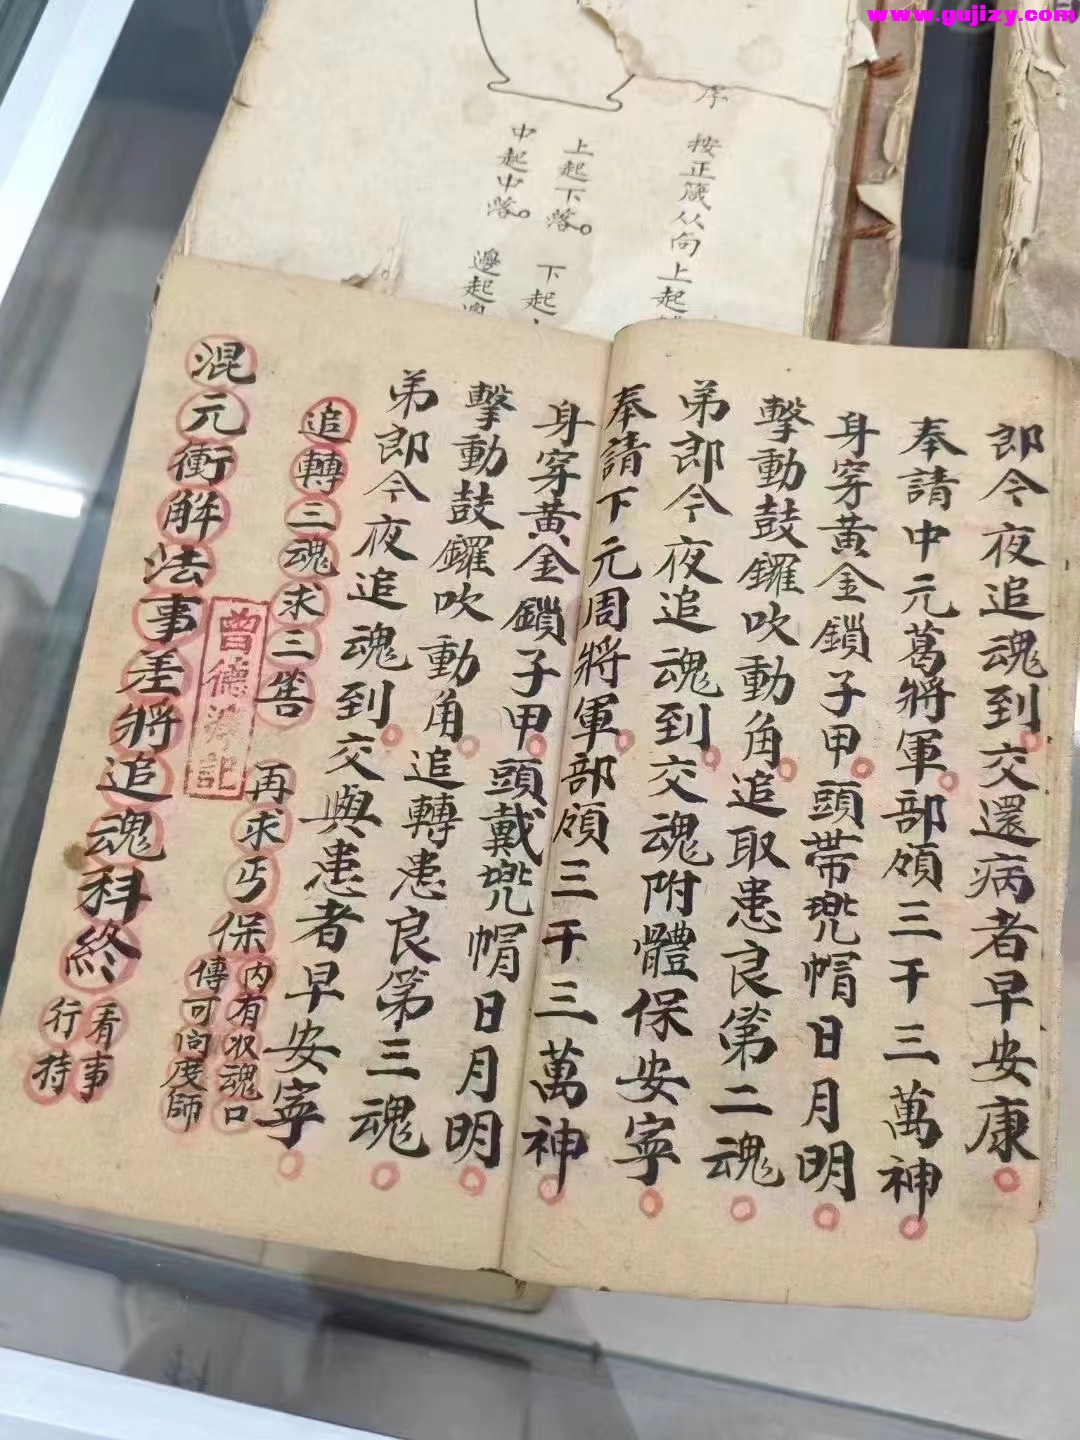 www.gujizy.com
序
按正箴从向上起
上起下落。下起
中起中落。邊起
郎今夜追魂到。交還病者早安康。
奉請中元葛將軍。部領三千三萬神。
身穿黃金鎖子甲。頭帶兜帽日月明。
擊動鼓鑼吹動角。追取患良第二魂。
弟郎今夜追魂到。交魂附體保安寧。
奉請下元周將軍。部領三千三萬神。
身穿黃金鎖子甲。頭戴兜帽日月明。
擊動鼓鑼吹動角。追轉患良第三魂。
弟郎今夜追魂到。交與患者早安寧。
追轉三魂求三筶 再求丐保
內有收魂口
傳可向度師
曾德 記
混元衝解法事差將追魂科終
看事
行持